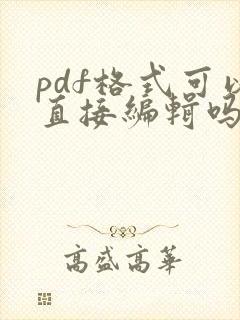 pdf格式可以
直接編輯吗
高盛高華